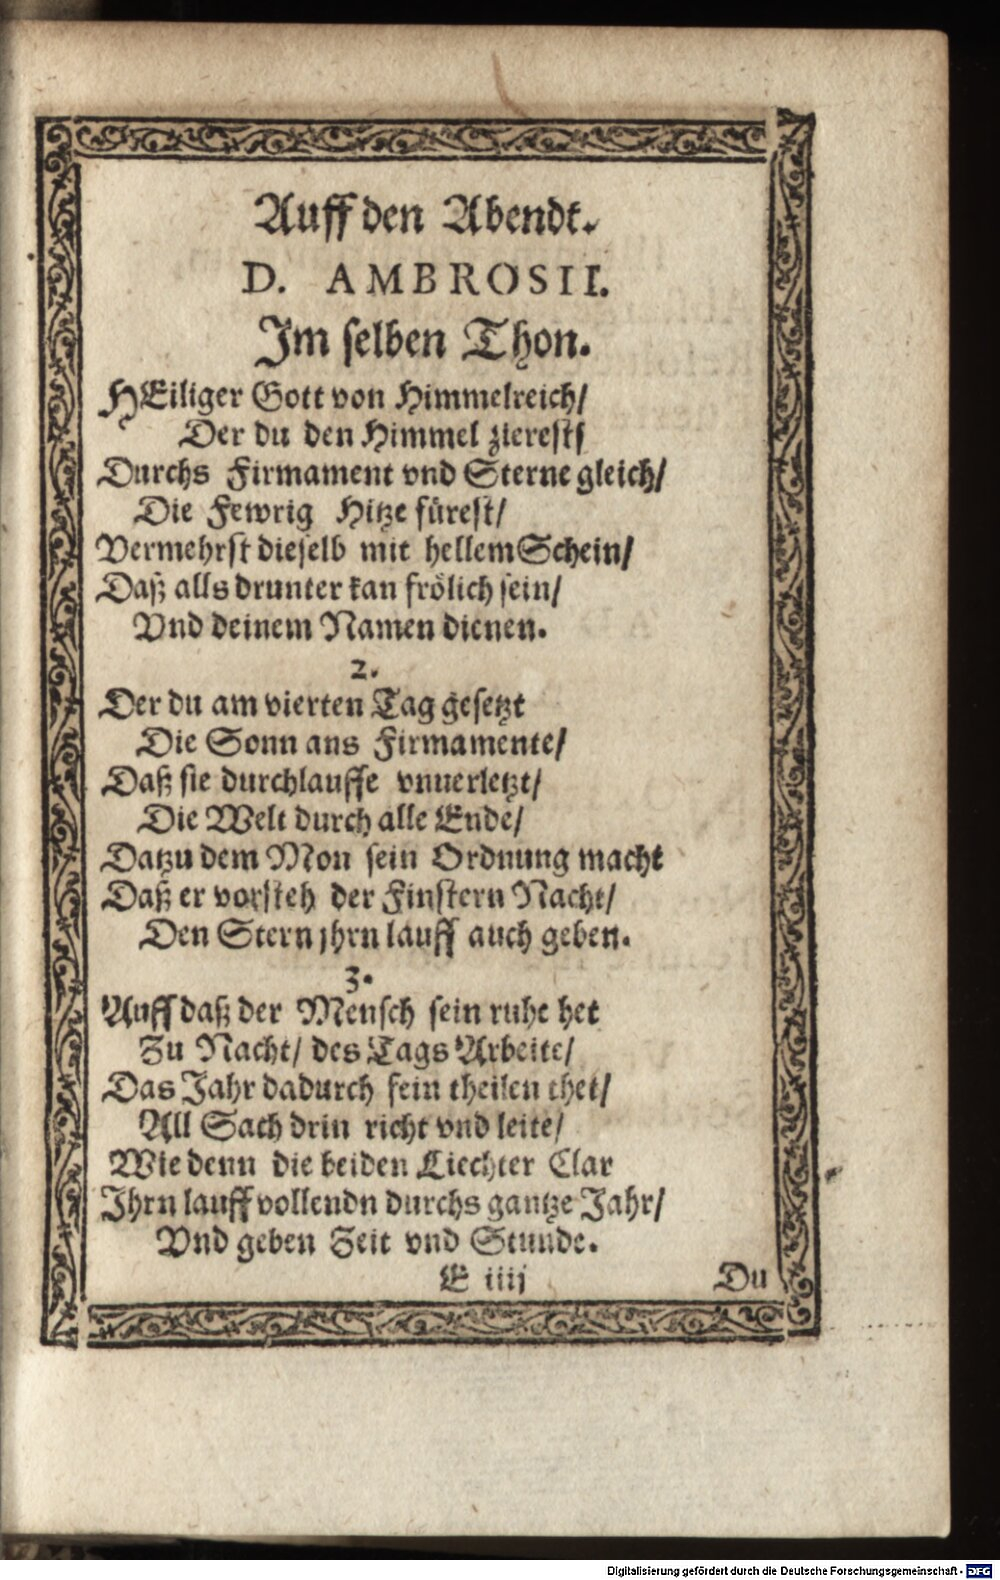 Auff den Abendt.
D. AMBROSII.
Im selben Thon.
HEiliger Gott von Himmelreich/
Der du den Himmel zierest/
Durchs Firmament vnd Sterne gleich/
Die Fewrig Hitze fürest/
Vermehrst dieselb mit hellem Schein/
Daß alls drunter kan frölich sein/
Vnd deinem Namen dienen.
2.
Der du am vierten Tag gesetzt
Die Sonn ans Firmamente/
Daß sie durchlauffe vnuerletzt/
Die Welt durch alle Ende/
Datzu dem Mon sein Ordnung macht
Daß er vorsteh der Finstern Nacht/
Den Stern jhrn lauff auch geben.
3.
Auff daß der Mensch sein ruhe het
Zu Nacht/ des Tags Arbeite/
Das Jahr dadurch fein theilen thet/
All Sach drin richt vnd leite/
Wie denn die beiden Liechter Clar
Ihrn lauff vollendn durchs gantze Jahr/
Vnd geben Zeit vnd Stunde.
E iiij Du
Digitalisierung gefördert durch die Deutsche Forschungsgemeinschaft - DFG